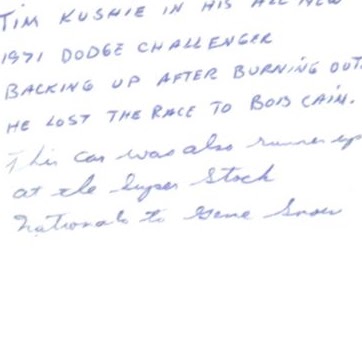 TIM KUSHIE IN HIS ALL NEW
1971 DODGE CHALLENGER
BACKING UP AFTER BURNING OUT.
HE LOST THE RACE TO BOB CAIN.
This car was also runner up
at the Super Stock
Nationals to Gene Snow